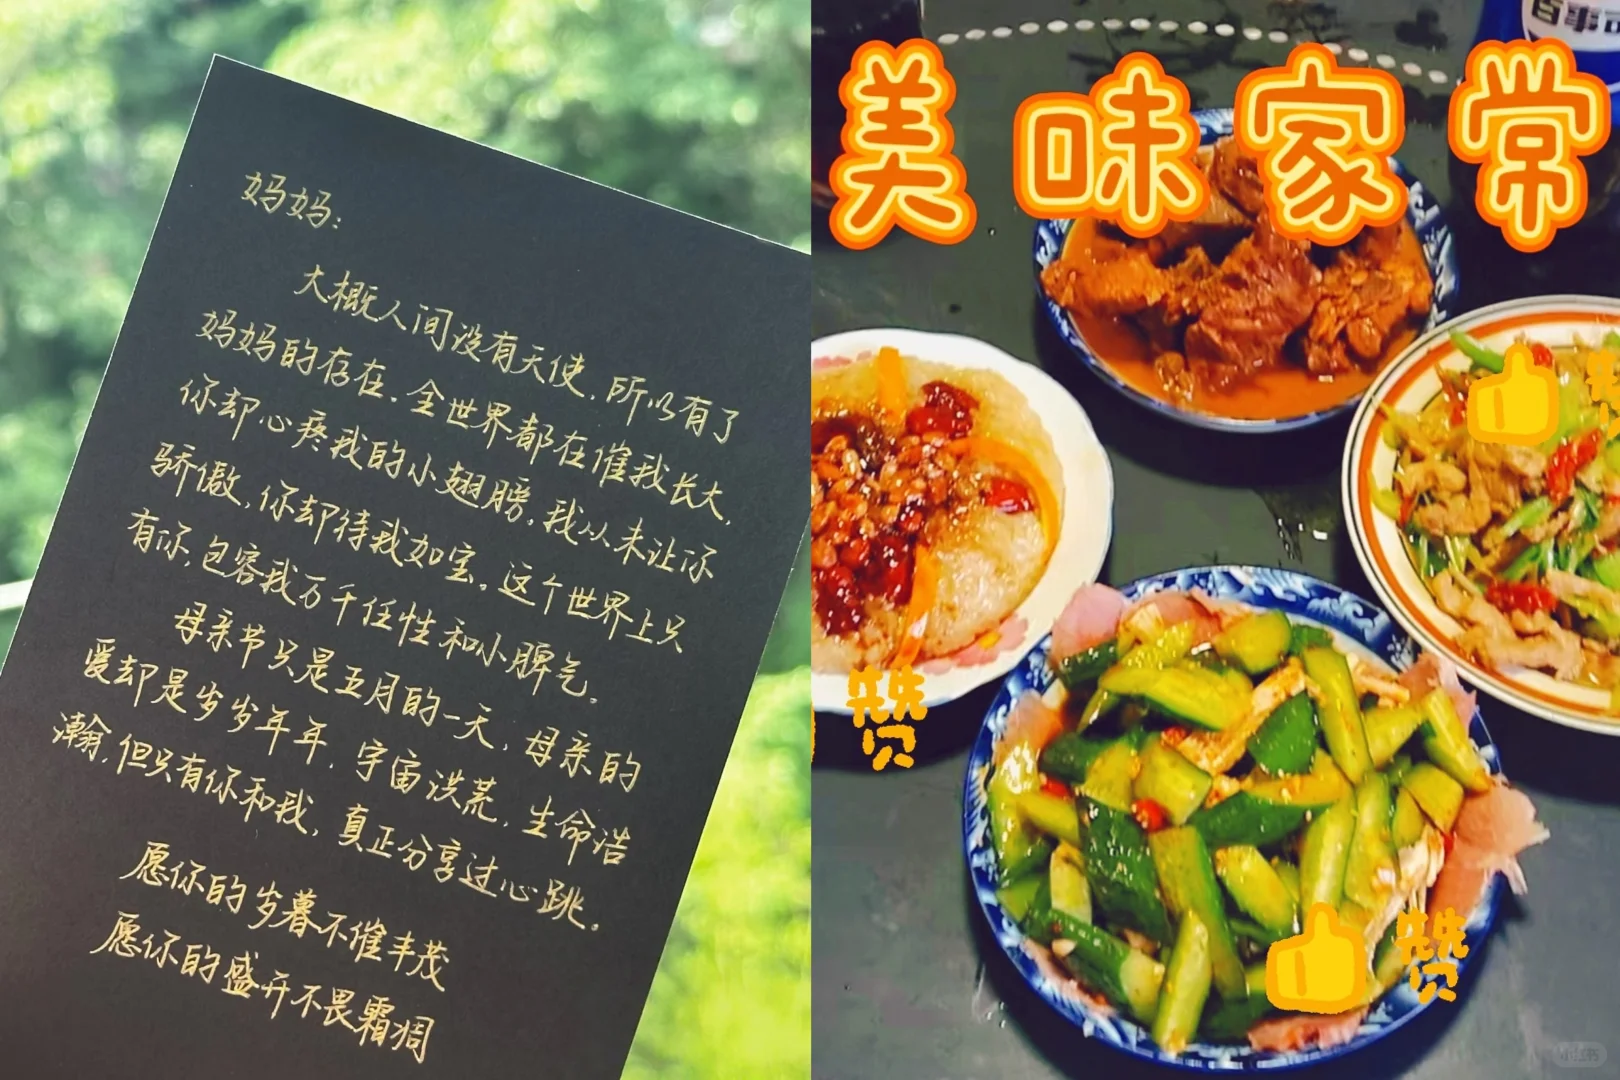 妈妈：
大概人间没有天使，所以有了
妈妈的存在。全世界都在催我长大，
你却心疼我的小翅膀。我从未让你
骄傲，你却待我如宝。这个世界上只
有你，包容我万千任性和小脾气。
母亲节只是五月的一天，母亲的
爱却是岁岁年年，宇宙洪荒，生命浩
瀚，但只有你和我，真正分享过心跳。
愿你的岁暮不催丰茂
愿你的盛开不畏霜凋
美味家常
百事可
赞
赞